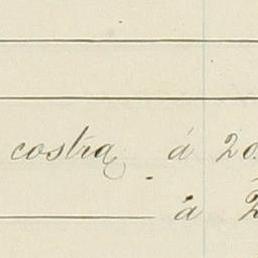 costra á 20.
á 2